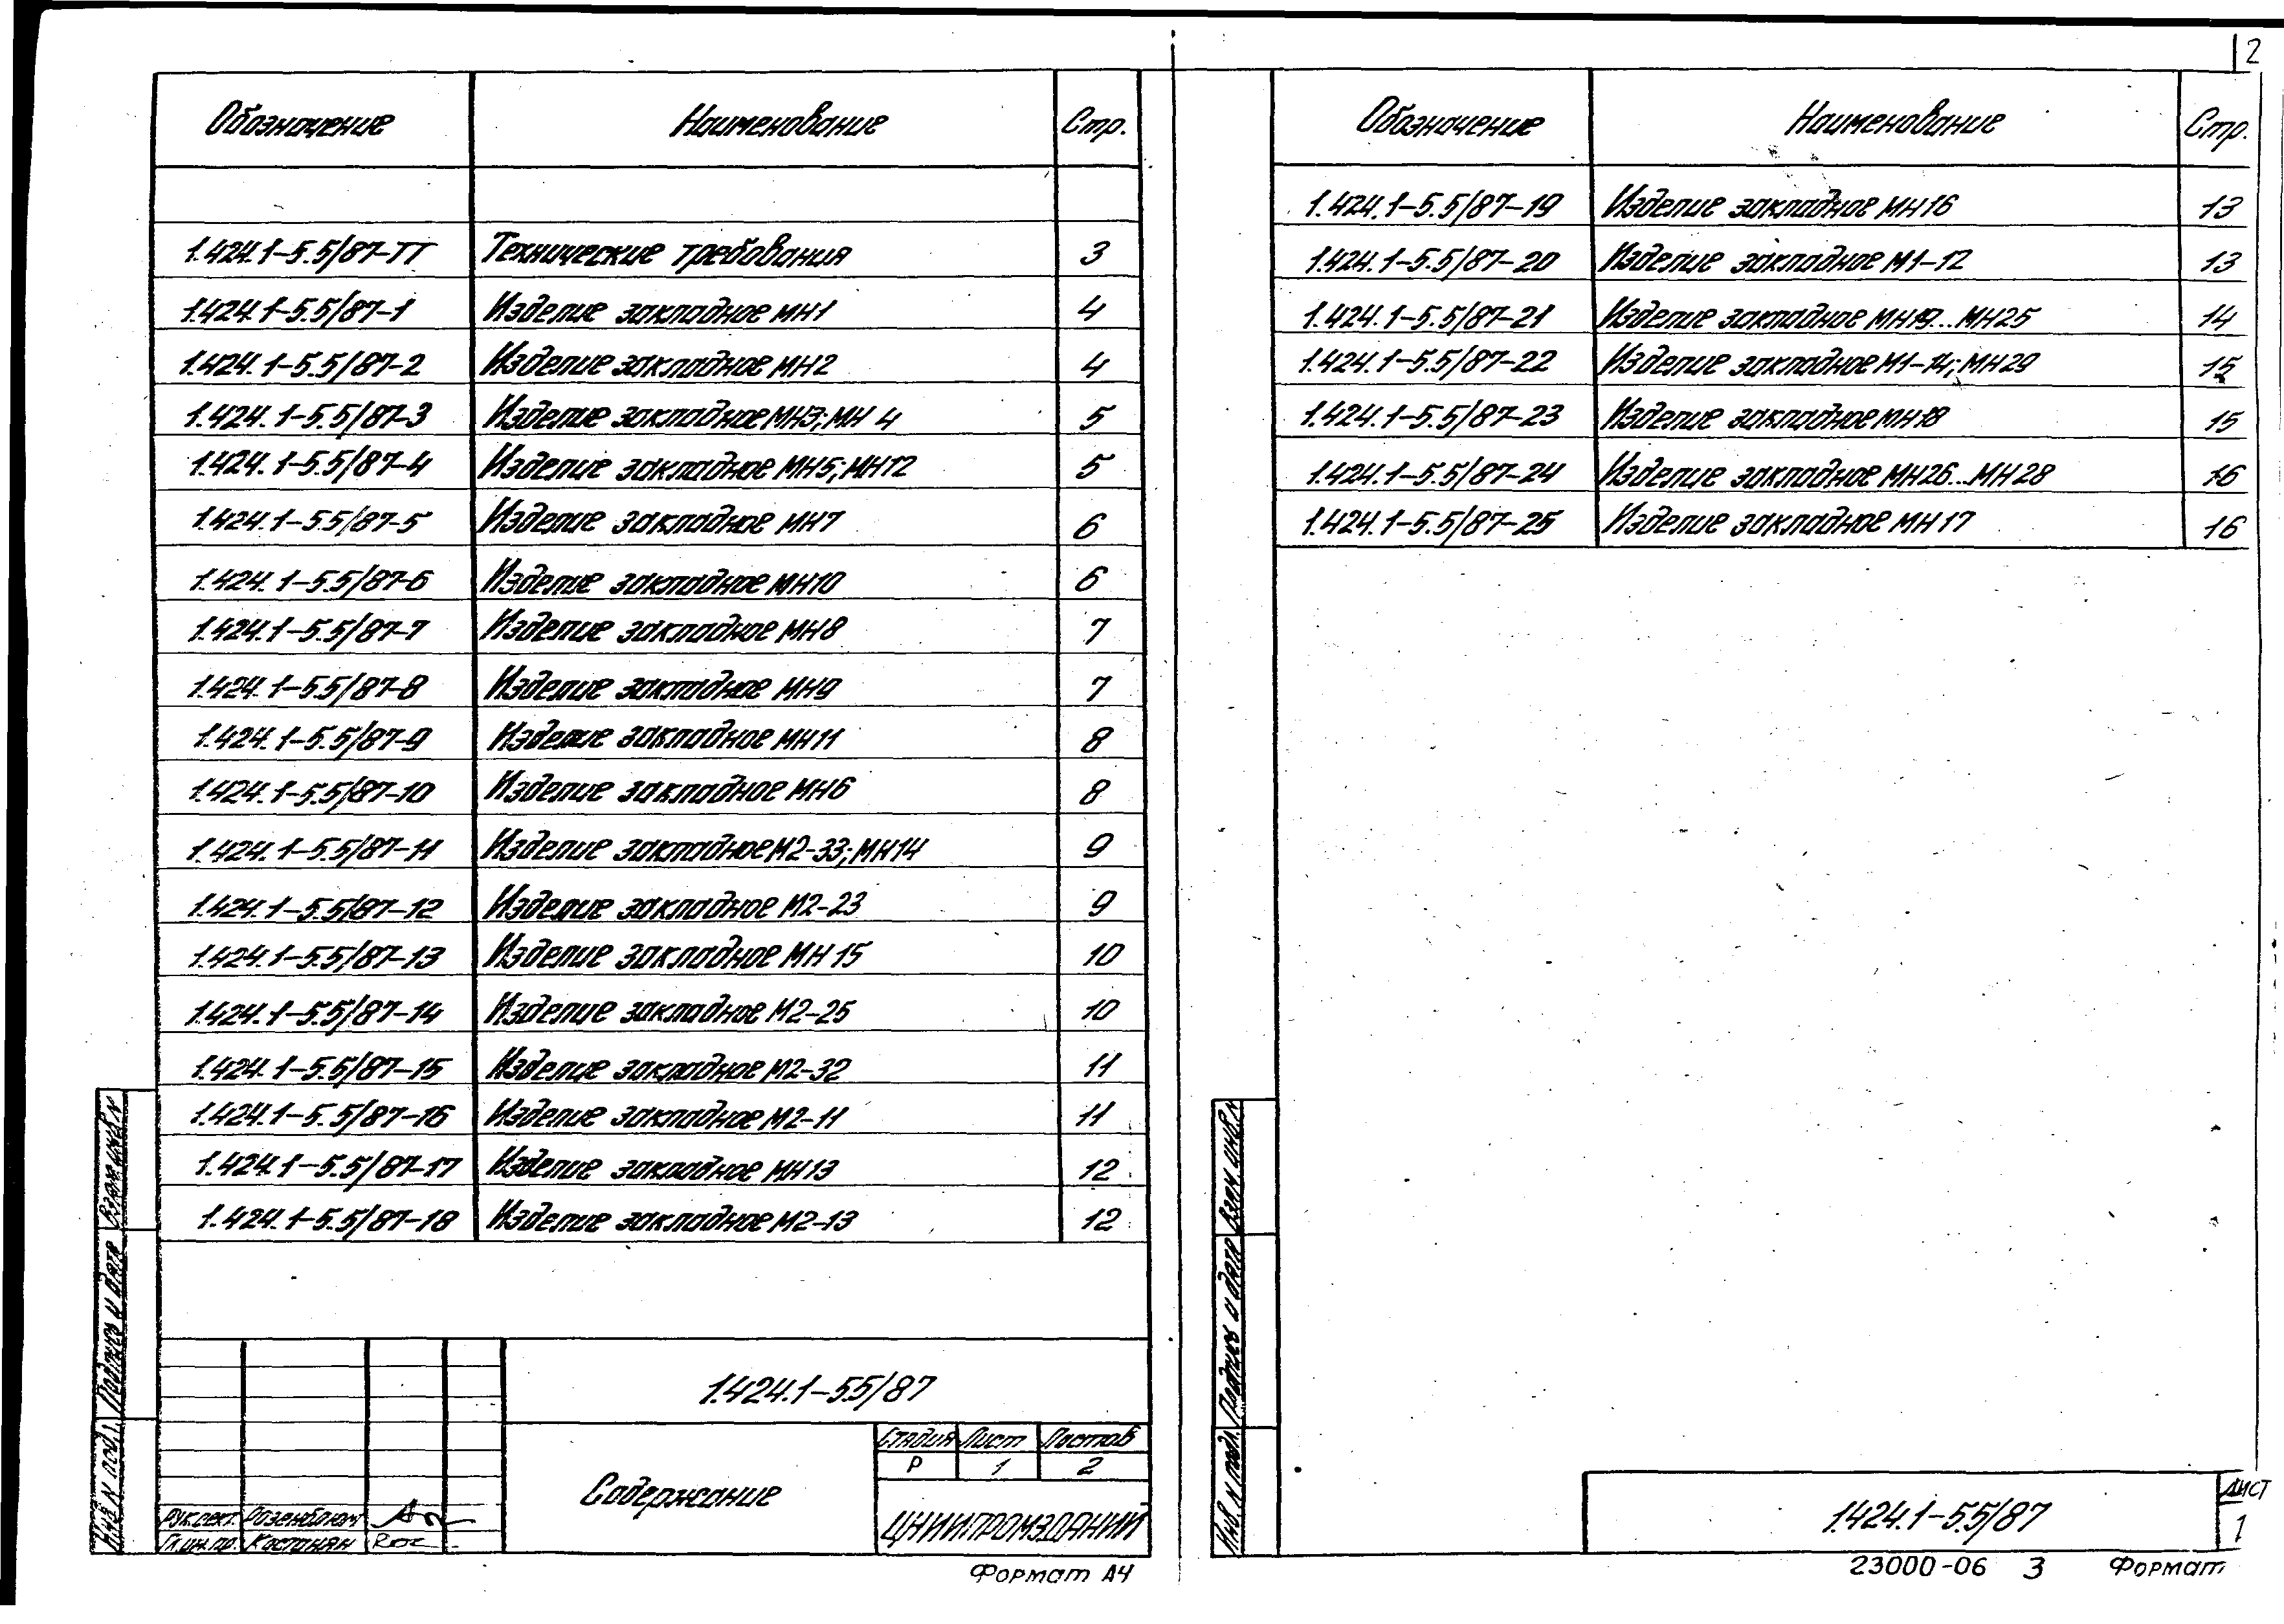 2
Обозначение Наименование Стр.
1.424.1-5.5/87-ТТ Технические требования 3
1.424.1-5.5/87-1 Изделие закладное МН1 4
1.424.1-5.5/87-2 Изделие закладное МН2 4
1.424.1-5.5/87-3 Изделие закладное МН3; МН 4 5
1.424.1-5.5/87-4 Изделие закладное МН5; МН12 5
1.424.1-5.5/87-5 Изделие закладное МН7 6
1.424.1-5.5/87-6 Изделие закладное МН10 6
1.424.1-5.5/87-7 Изделие закладное МН8 7
1.424.1-5.5/87-8 Изделие закладное МН9 7
1.424.1-5.5/87-9 Изделие закладное МН11 8
1.424.1-5.5/87-10 Изделие закладное МН6 8
1.424.1-5.5/87-11 Изделие закладное М2-33; МН14 9
1.424.1-5.5/87-12 Изделие закладное М2-23 9
1.424.1-5.5/87-13 Изделие закладное МН 15 10
1.424.1-5.5/87-14 Изделие закладное М2-25 10
1.424.1-5.5/87-15 Изделие закладное М2-32 11
1.424.1-5.5/87-16 Изделие закладное М2-11 11
1.424.1-5.5/87-17 Изделие закладное МН13 12
1.424.1-5.5/87-18 Изделие закладное М2-13 12
1.424.1-5.5/87
Содержание
Стадия Лист Листов
Р 1 2
ЦНИИПРОМЗДАНИЙ
Рук.сект. Розенблюм
Гл.инж.пр. Костанян
Инв. N подл. Подпись и дата Взам. инв. N
Формат А4
Обозначение Наименование Стр.
1.424.1-5.5/87-19 Изделие закладное МН16 13
1.424.1-5.5/87-20 Изделие закладное М1-12 13
1.424.1-5.5/87-21 Изделие закладное МН19...МН25 14
1.424.1-5.5/87-22 Изделие закладное М1-14; МН29 15
1.424.1-5.5/87-23 Изделие закладное МН18 15
1.424.1-5.5/87-24 Изделие закладное МН26...МН28 16
1.424.1-5.5/87-25 Изделие закладное МН17 16
Инв. N подл. Подпись и дата Взам. инв. N
1.424.1-5.5/87
Лист
1
23000-06 3 Формат